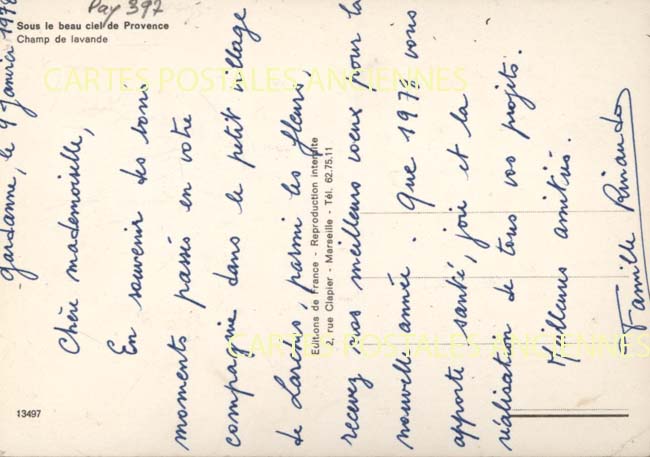 Pay 397
Sous le beau ciel de Provence
Champ de lavande
CARTES POSTALES ANCIENNES
Gardanne, le 9 Janvier 1978
Chère mademoiselle,
En souvenir des bons
moments passés en votre
compagnie dans le petit village
de, parmi les fleurs,
recevez nos meilleurs voeux pour la
nouvelle année. Que 1978 vous
apporte santé, joie et la
réalisation de tous vos projets.
Meilleures amitiés.
Famille
Editions de France - Reproduction interdite
2, rue Clapier - Marseille - Tél. 62.75.11
CARTES POSTALES ANCIENNES
13497